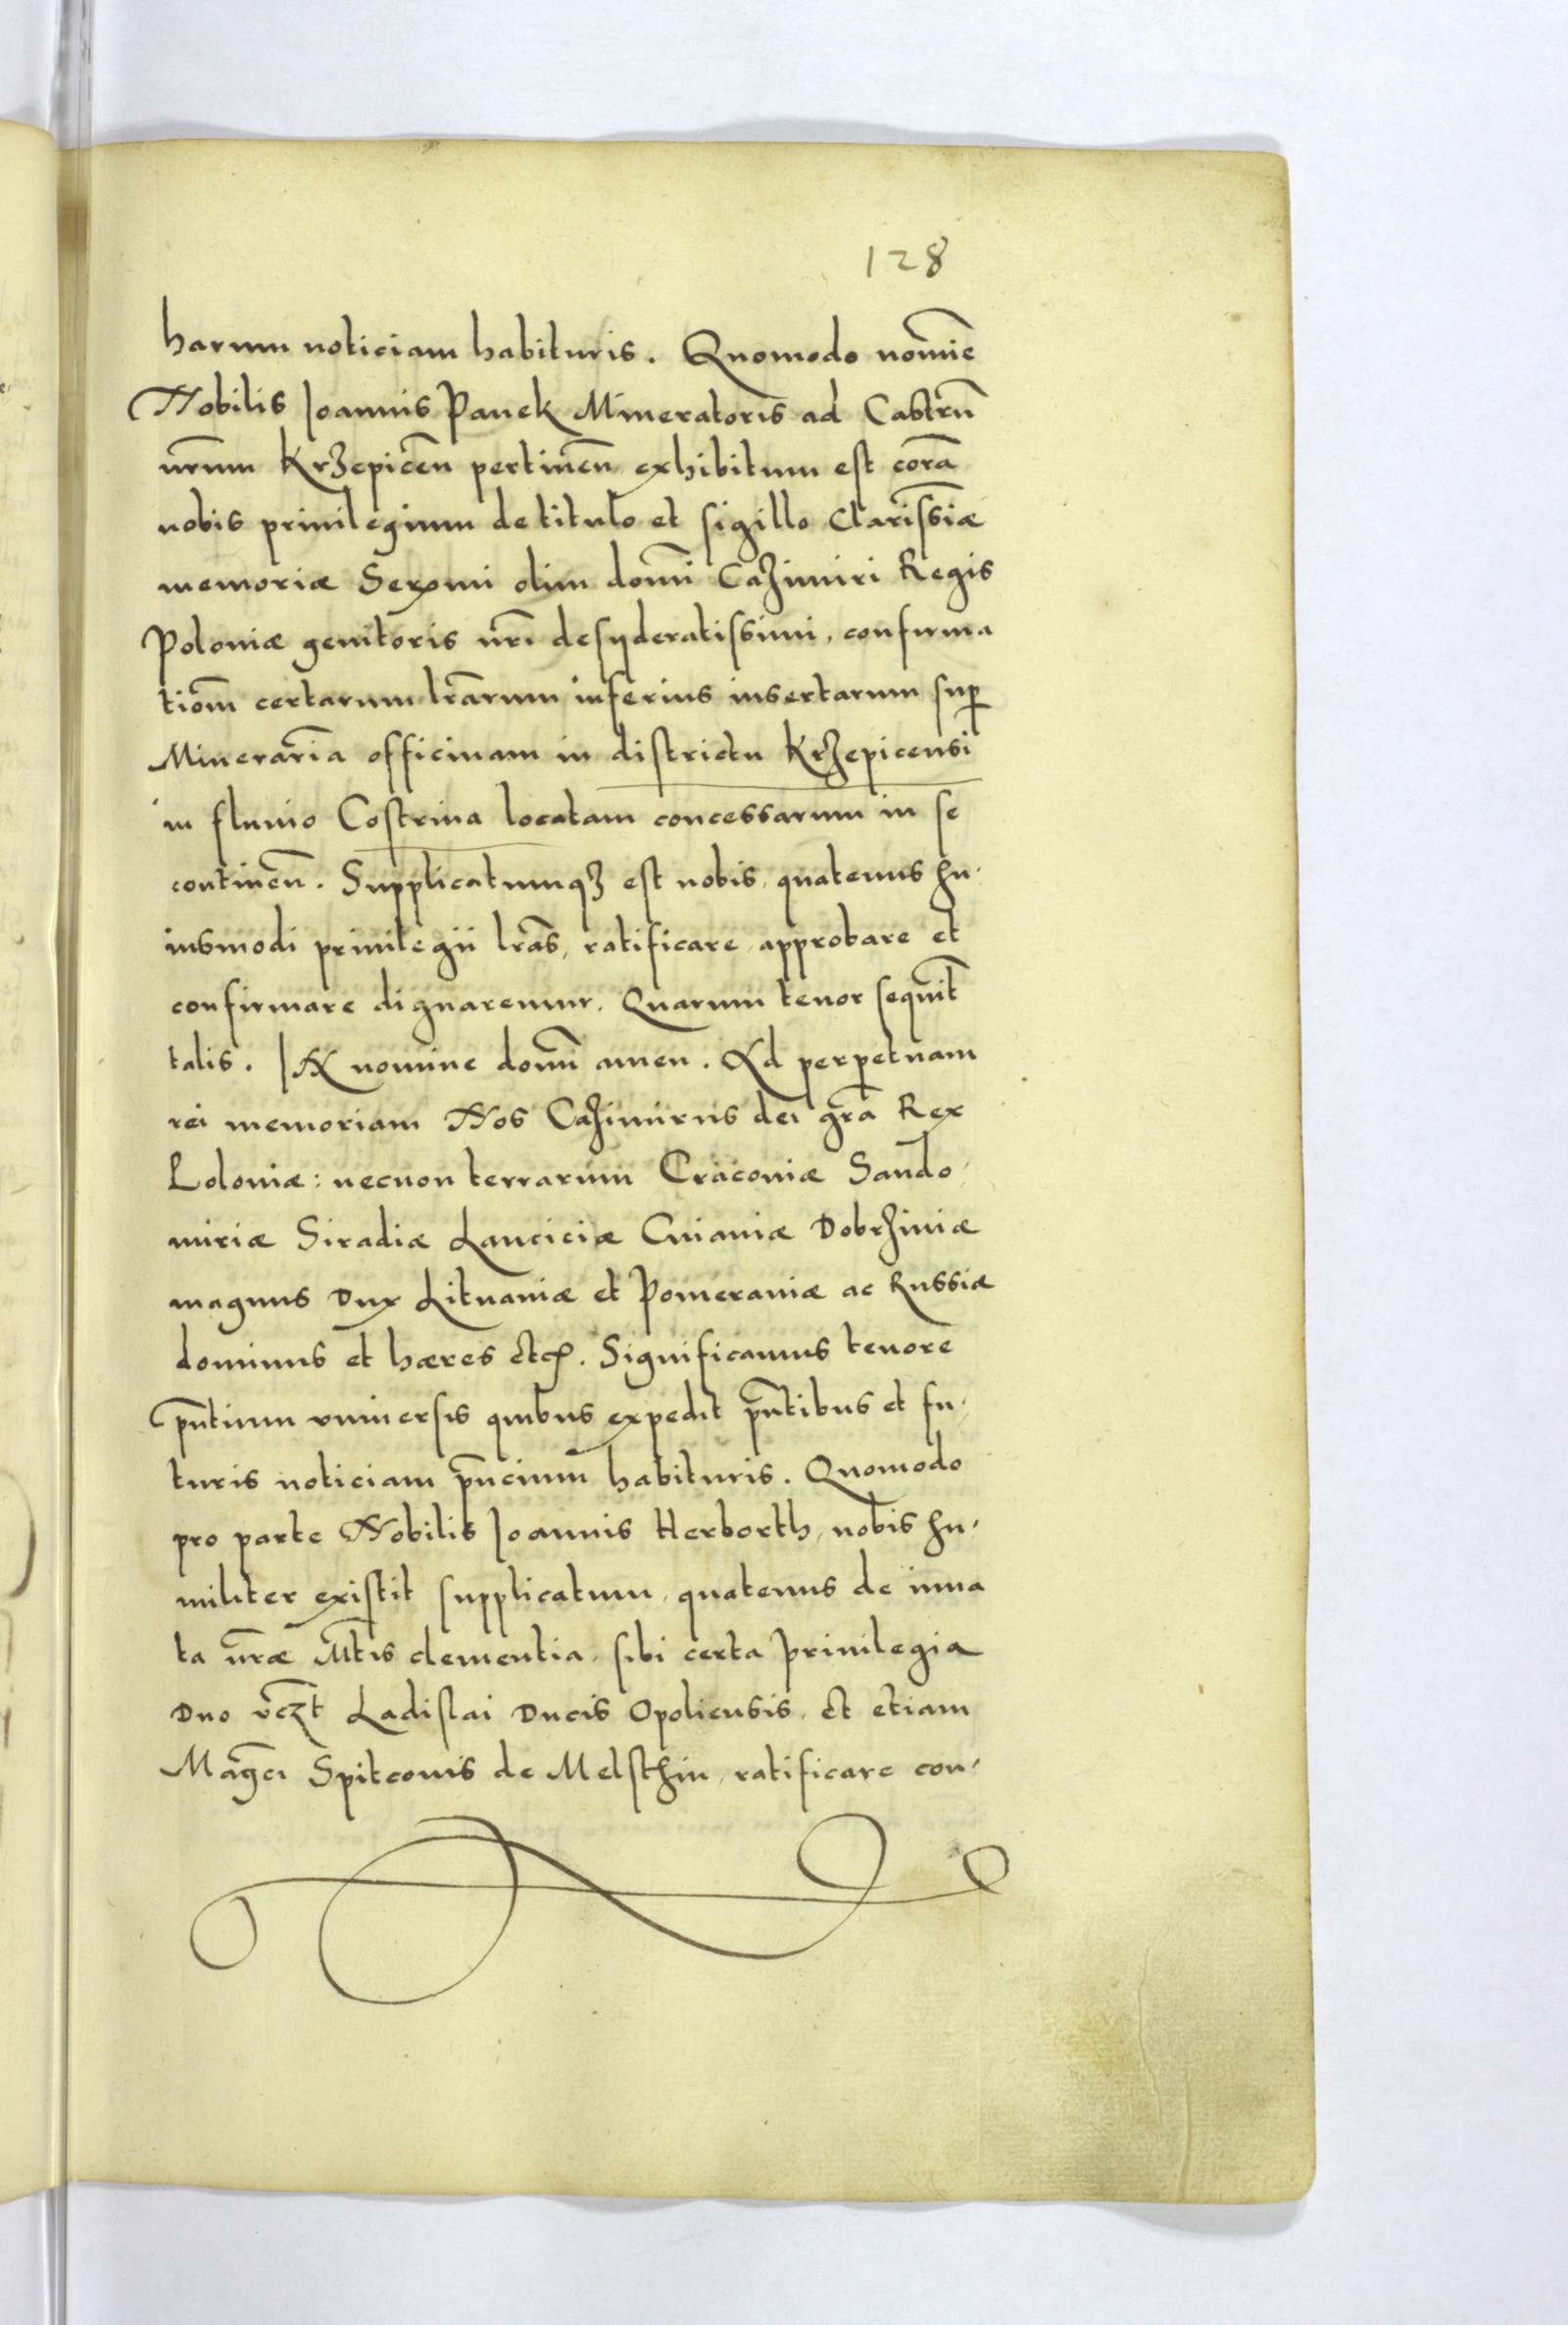 128
harum noticiam habituris. Quomodo nom̄ie
Nobilis Joannis Panek Mineratoris ad Castrū
nr̄um Krzepiceñ pertineñ exhibitum est corā
nobis priuilegium de titulo et sigillo Clarissīæ
memoriæ Serᵐⁱ olim domī Cazimiri Regis
Poloniæ genitoris nr̄i desyderatissimi, confirma
tiom̄ certarum lr̄arum inferius insertarum suꝑ
Minerariā officinam in districtu Krzepicensi
in fluuio Costrina locatam concessarum in se
contineñ. Supplicatumqȝ est nobis, quatenus hu-
iusmodi priuilegii lr̄as, ratificare, approbare et
confirmare dignaremur. Quarum tenor sequit̄
talis. IN nomine domī amen. Ad perpetuam
rei memoriam Nos Cazimirus dei gr̄a Rex
Poloniæ: necnon terrarum Cracouiæ Sando-
miriæ Siradiæ Lanciciæ Cuiauiæ Dobrziniæ
magnus Dux Lituaniæ et Pomeraniæ ac Russiæ
dominus et hæres etcꝫ. Significamus tenore
pn̄tium vniuersis quibus expedit pn̄tibus et fu-
turis noticiam pn̄cium habituris. Quomodo
pro parte Nobilis Joannis Herborth, nobis hu-
militer existit supplicatum, quatenus de inna
ta nr̄æ Mt̄is clementia, sibi certa priuilegia
Duo vcz̄t Ladislai Ducis Opoliensis, et etiam
Maḡci Spitconis de Melsthin, ratificare con-